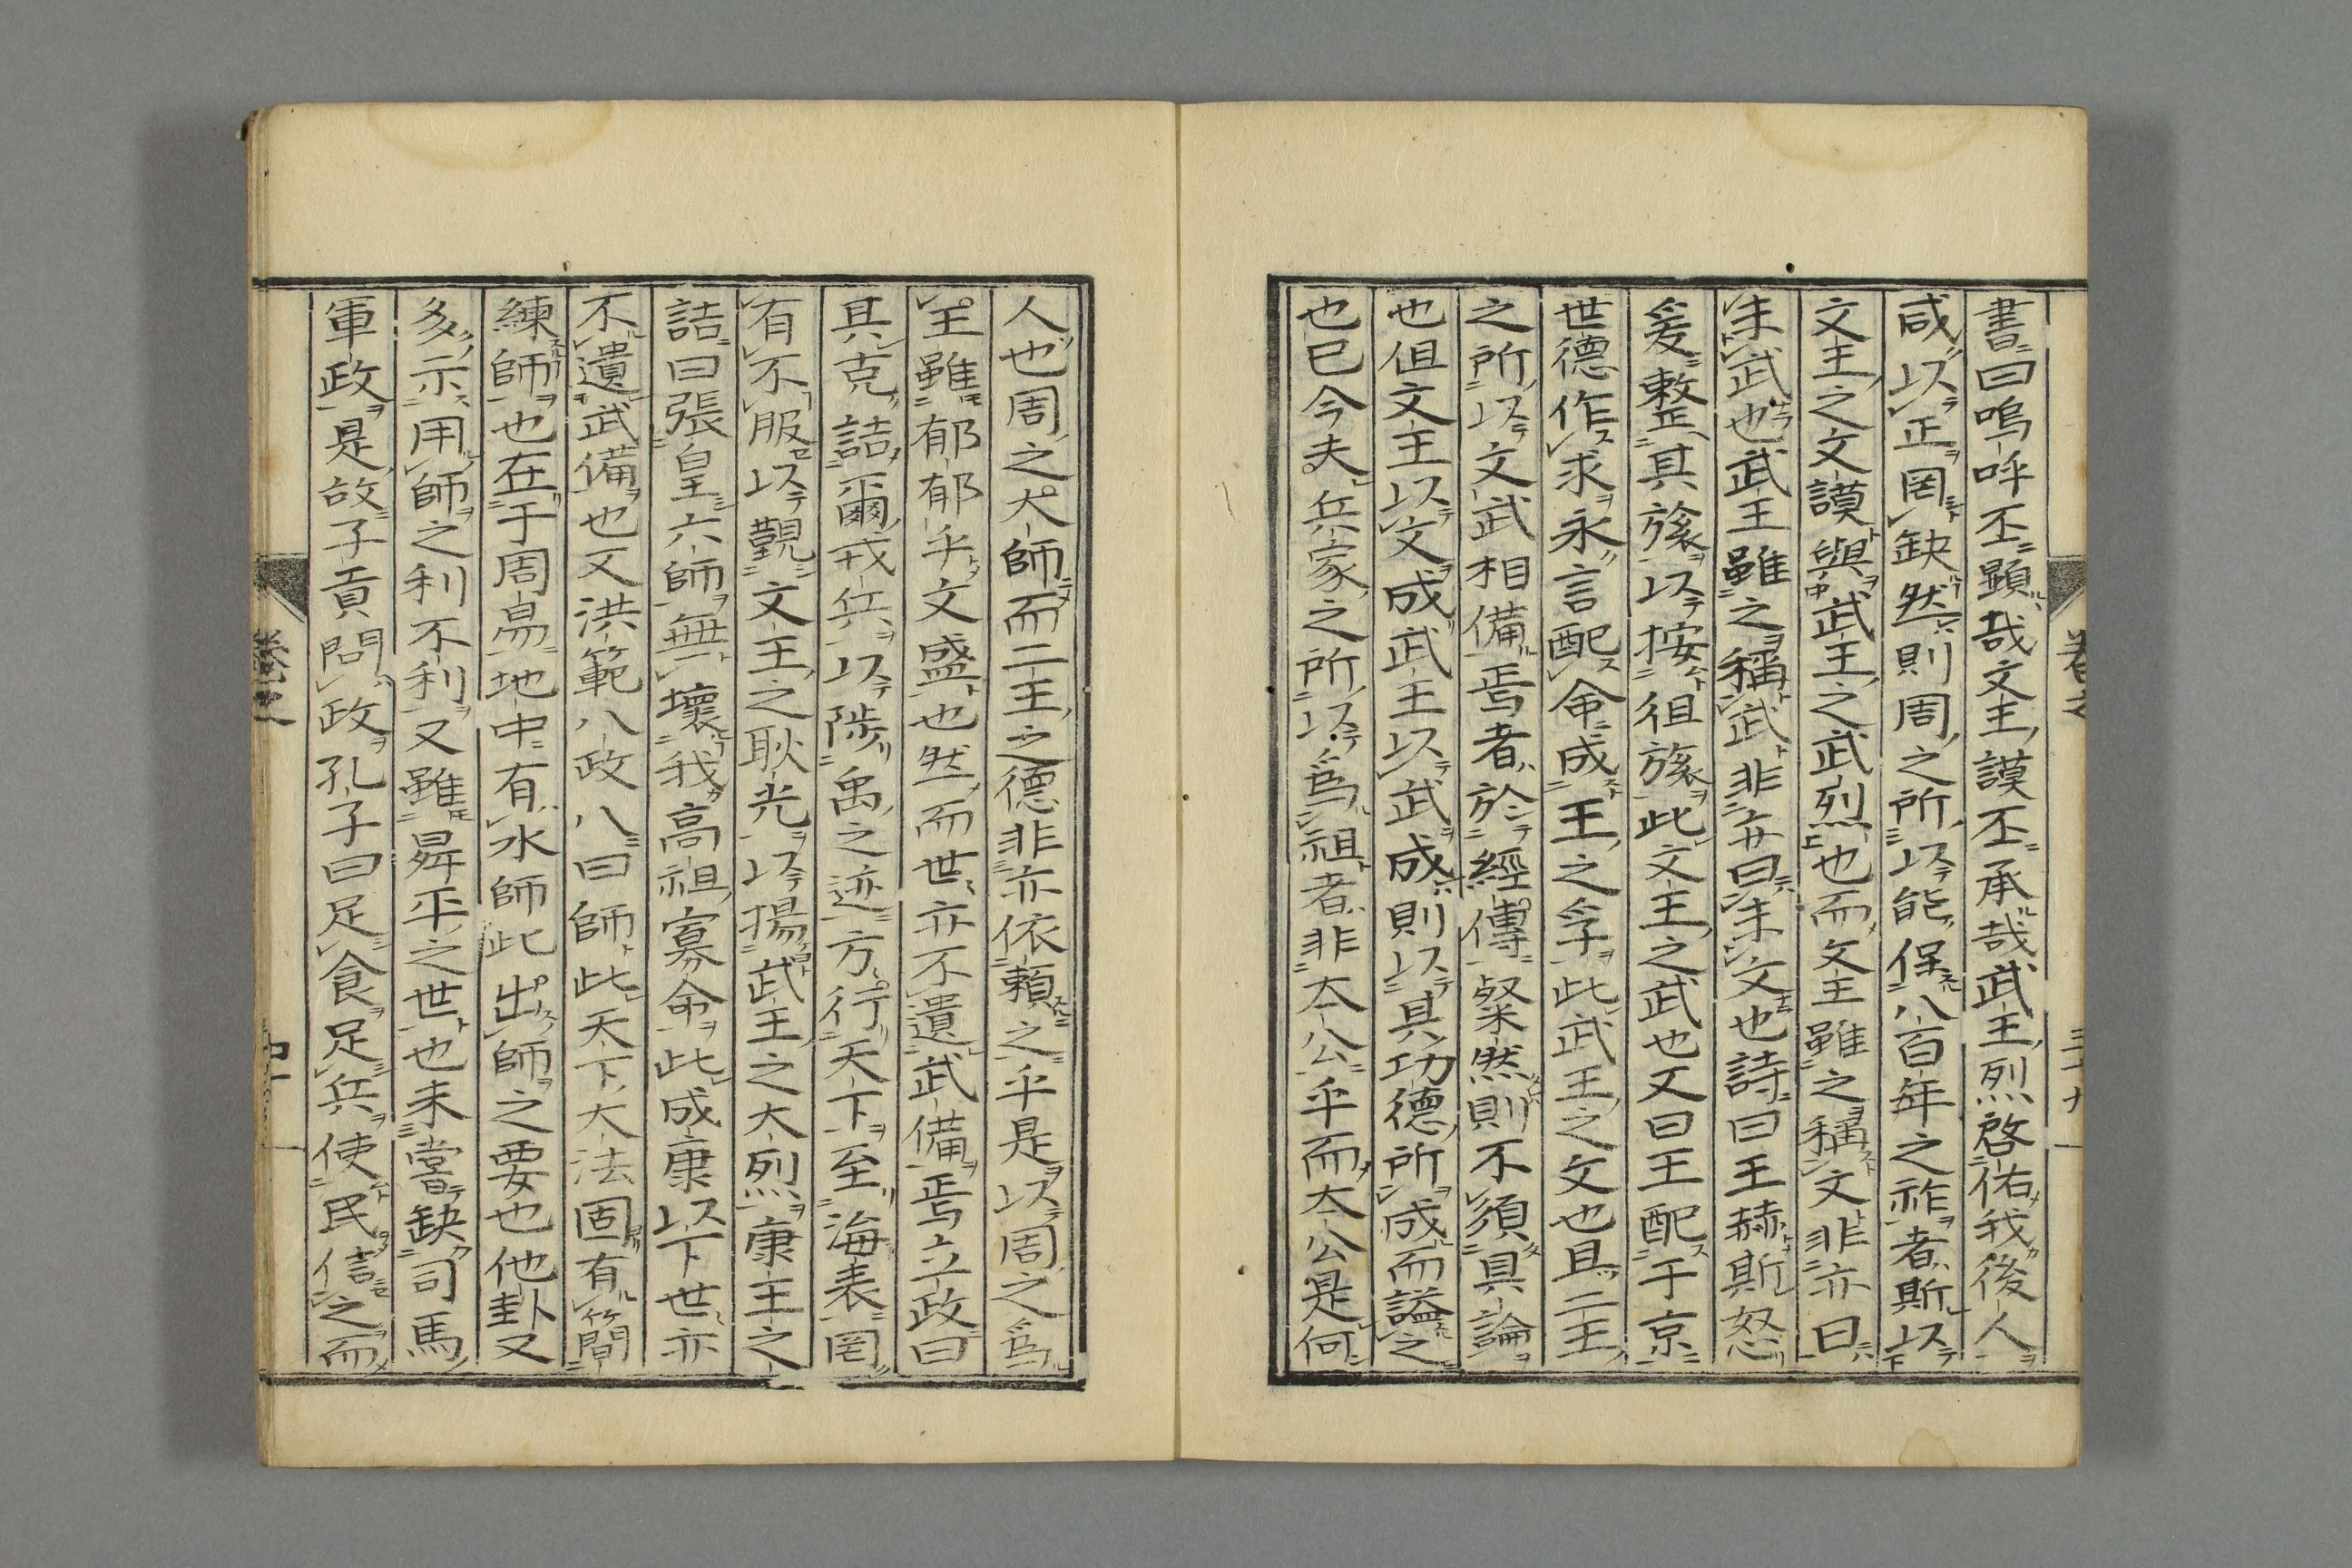 書曰嗚呼丕顯哉文王謨丕承哉武王烈啓佑我後人
咸以正罔缺然則周之所以能保八百年之祚者斯以
文王之文謨與武王之武烈也而文王雖之稱文非亦曰
未武也武王雖之稱武非亦曰未文也詩曰王赫斯怒
爰整其旅以按徂旅此文王之武也又曰王配于京
世德作求永言配命成王之孚此武王之文也且二王
之所以文武相備焉者於經傳粲然則不須具論
也但文王以文成武王以武成則以其功德所成而謚之
也已今夫兵家之所以爲祖者非太公乎而太公是何
人也周之大師而二王之德非亦依賴之乎是以周之爲
王雖郁郁乎文盛也然而世亦不遺武備焉立政曰
其克詰爾戎兵以陟禹之迹方行天下至海表罔
有不服以觀文王之耿光以揚武王之大烈康王之
誥曰張皇六師無壞我高祖寡命此成康以下世亦
不遺武備也又洪範八政八曰師此天下大法固有簡
練師也在于周易地中有水師此出師之要也他卦又
多示用師之利不利又雖昇平之世也未嘗缺司馬
軍政是故子貢問政孔子曰足食足兵使民信之而